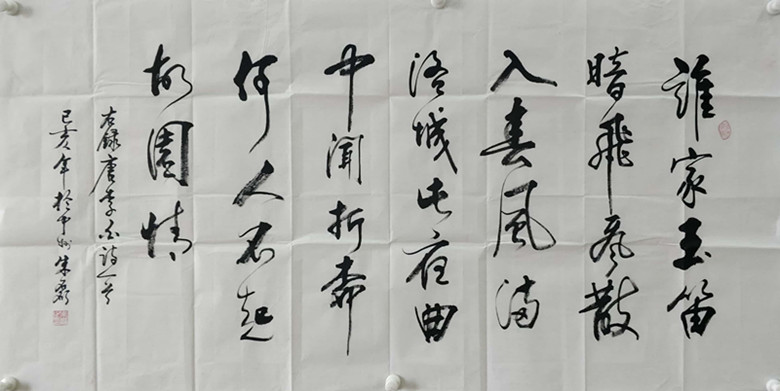 誰家玉笛
暗飛声散
入春風滿
洛城此夜曲
中聞折柳
何人不起
故園情
右錄唐李白詩一首
己亥年於中州朱